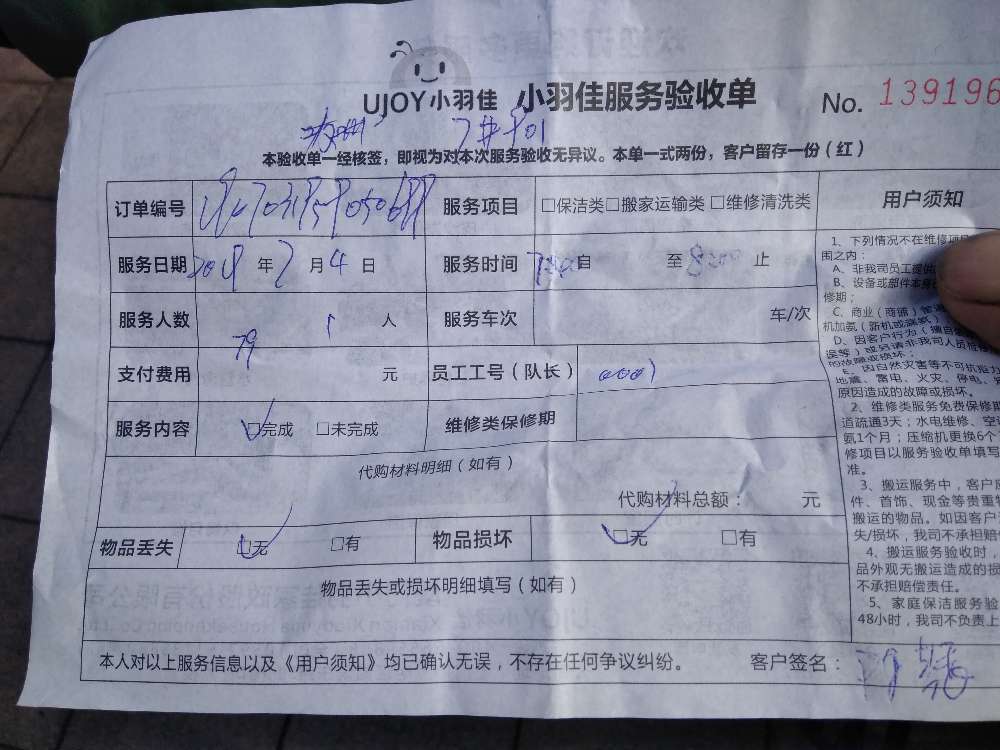 UJOY小羽佳 小羽佳服务验收单 No. 139196
7# 901
本验收单一经核签，即视为对本次服务验收无异议。本单一式两份，客户留存一份（红）
订单编号 服务项目 □保洁类□搬家运输类 □维修清洗类
服务日期 年 2 月 4 日 服务时间 自 至 止
服务人数 1 人 服务车次 车/次
支付费用 79 元 员工工号（队长） 0001
服务内容 □完成 □未完成 维修类保修期
代购材料明细（如有）
代购材料总额： 元
物品丢失 □无 □有 物品损坏 □无 □有
物品丢失或损坏明细填写（如有）
本人对以上服务信息以及《用户须知》均已确认无误，不存在任何争议纠纷。 客户签名：
用户须知
1、下列情况不在维修
围之内：
A、非我司员工提供
B、设备或部件本身
修期；
C、商业（商铺）
机加氨（新机或
D、因客户行为（擅自
误等）或另请非我司人员
的故障或损坏；
E、因自然灾害等不可抗力
地震、雷电、火灾、停电、
原因造成的故障或损坏。
2、维修类服务免费保修期
道疏通3天；水电维修、空
氨1个月；压缩机更换6个
修项目以服务验收单填写
准。
3、搬运服务中，客户
件、首饰、现金等贵重
搬运的物品。如因客户
失/损坏，我司不承担赔
4、搬运服务验收时，
品外观无搬运造成的损
不承担赔偿责任。
5、家庭保洁服务验
48小时，我司不负责上